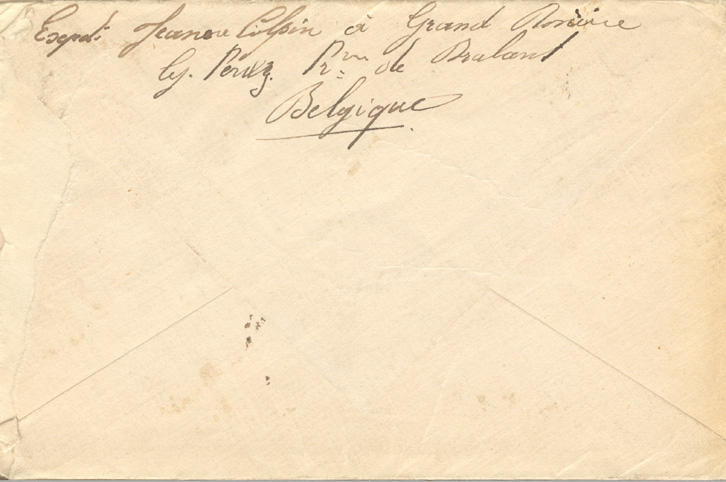 Exped: Jeanne Culpin à Grand Rosière
by. Perwez. Prvce de Brabant
Belgique